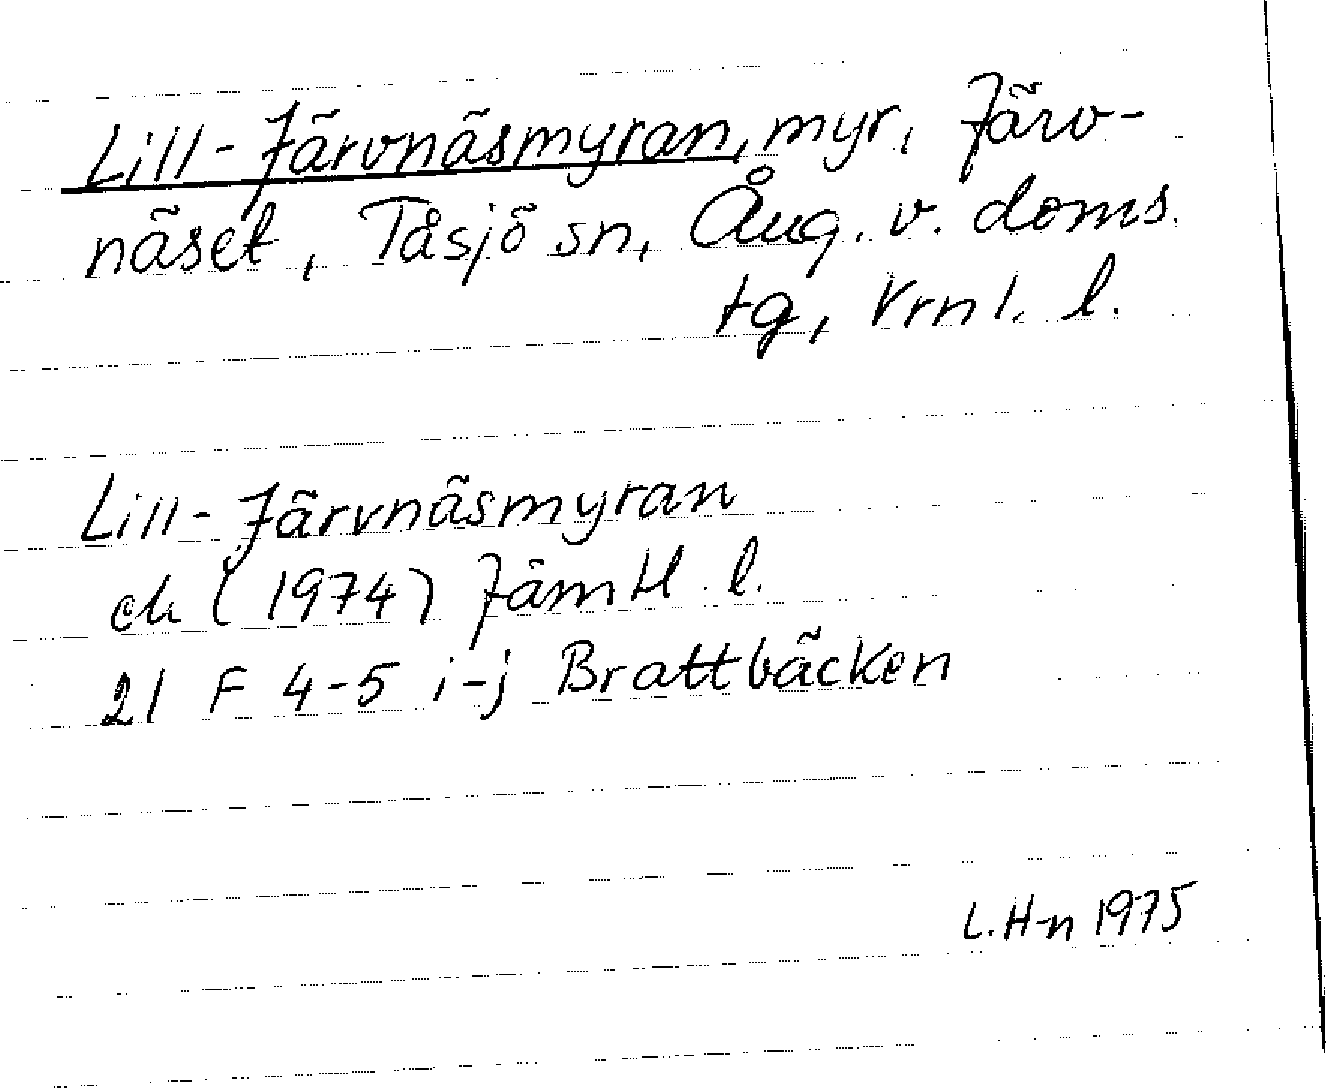 Lill-Järvnäsmyran, myr, Järv-
näset, Tåsjö sn, Ång. v. doms.
tg, Vrnl. l.
Lill-Järvnäsmyran
ek (1974) Jämtl. l.
21 F 4-5 i-j Brattbäcken
L. H-n 1975